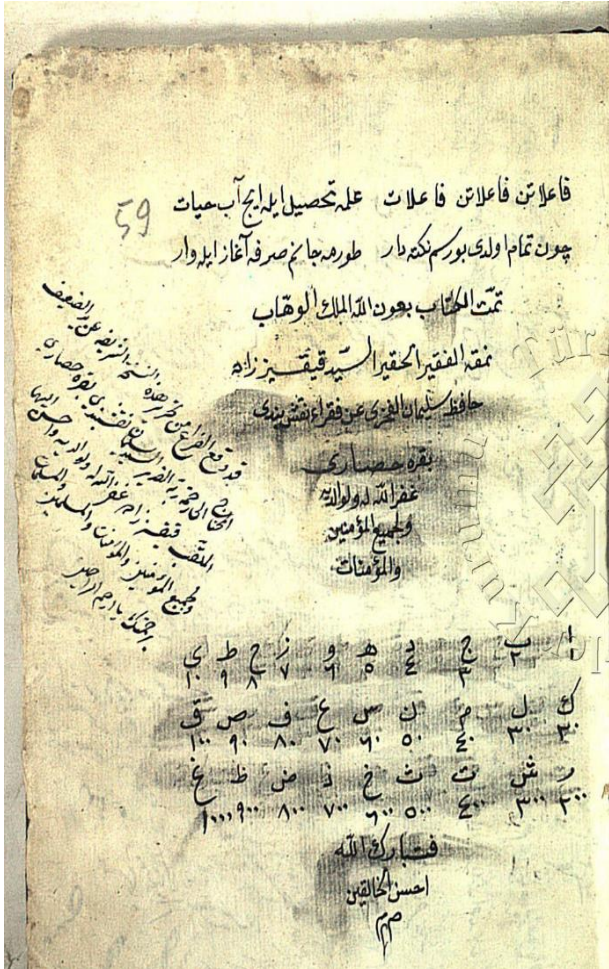 فاعلاتن فاعلاتن فاعلات علمه تحصيل ايله ايچ آب حيات
59
چون تمام اولدى بو رسم نكته دار طورمه جانم صرفه آغاز ايله وار
تمت الكتاب بعون الله الملك الوهاب
نمقه الفقير الحقير السيد قيقيز زاده
حافظ سليمان الفخرى عن فقراء نقشبندى
بقره حصارى
غفر الله له ولوالديه
ولجميع المؤمنين
والمؤمنات
قد وقع الفراغ من تحرير هذه النسخة الشريفة عن يد الضعيف
المحتاج الى رحمة ربه السيد سليمان نقشبندى بقره حصارى
الملقب زاده غفر الله له ولوالديه واحسن اليهما
ولجميع المؤمنين والمؤمنات والمسلمين والمسلمات
برحمتك يا ارحم الراحمين
ا ب ج د ه و ز ح ط ى
١ ٢ ٣ ٤ ٥ ٦ ٧ ٨ ٩ ١٠
ك ل م ن س ع ف ص ق
٢٠ ٣٠ ٤٠ ٥٠ ٦٠ ٧٠ ٨٠ ٩٠ ١٠٠
ر ش ت ث خ ذ ض ظ غ
٢٠٠ ٣٠٠ ٤٠٠ ٥٠٠ ٦٠٠ ٧٠٠ ٨٠٠ ٩٠٠ ١٠٠٠
فتبارك الله
احسن الخالقين